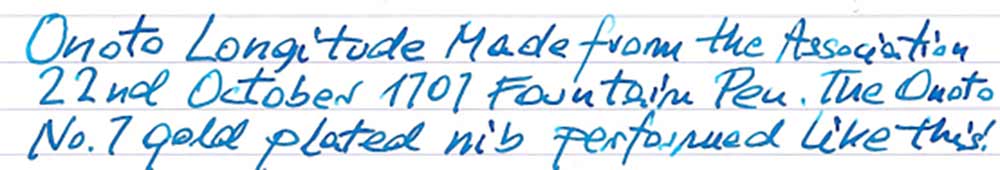 Onoto Longitude Made from the Association
22nd October 1707 Fountain Pen. The Onoto
No. 7 gold plated nib performed like this!